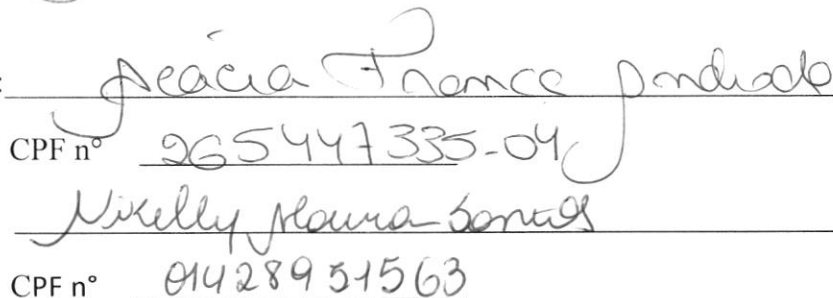 : Acácia França Andrade
CPF nº 265447335-04
Nikelly Moura Santos
CPF nº 01428951563